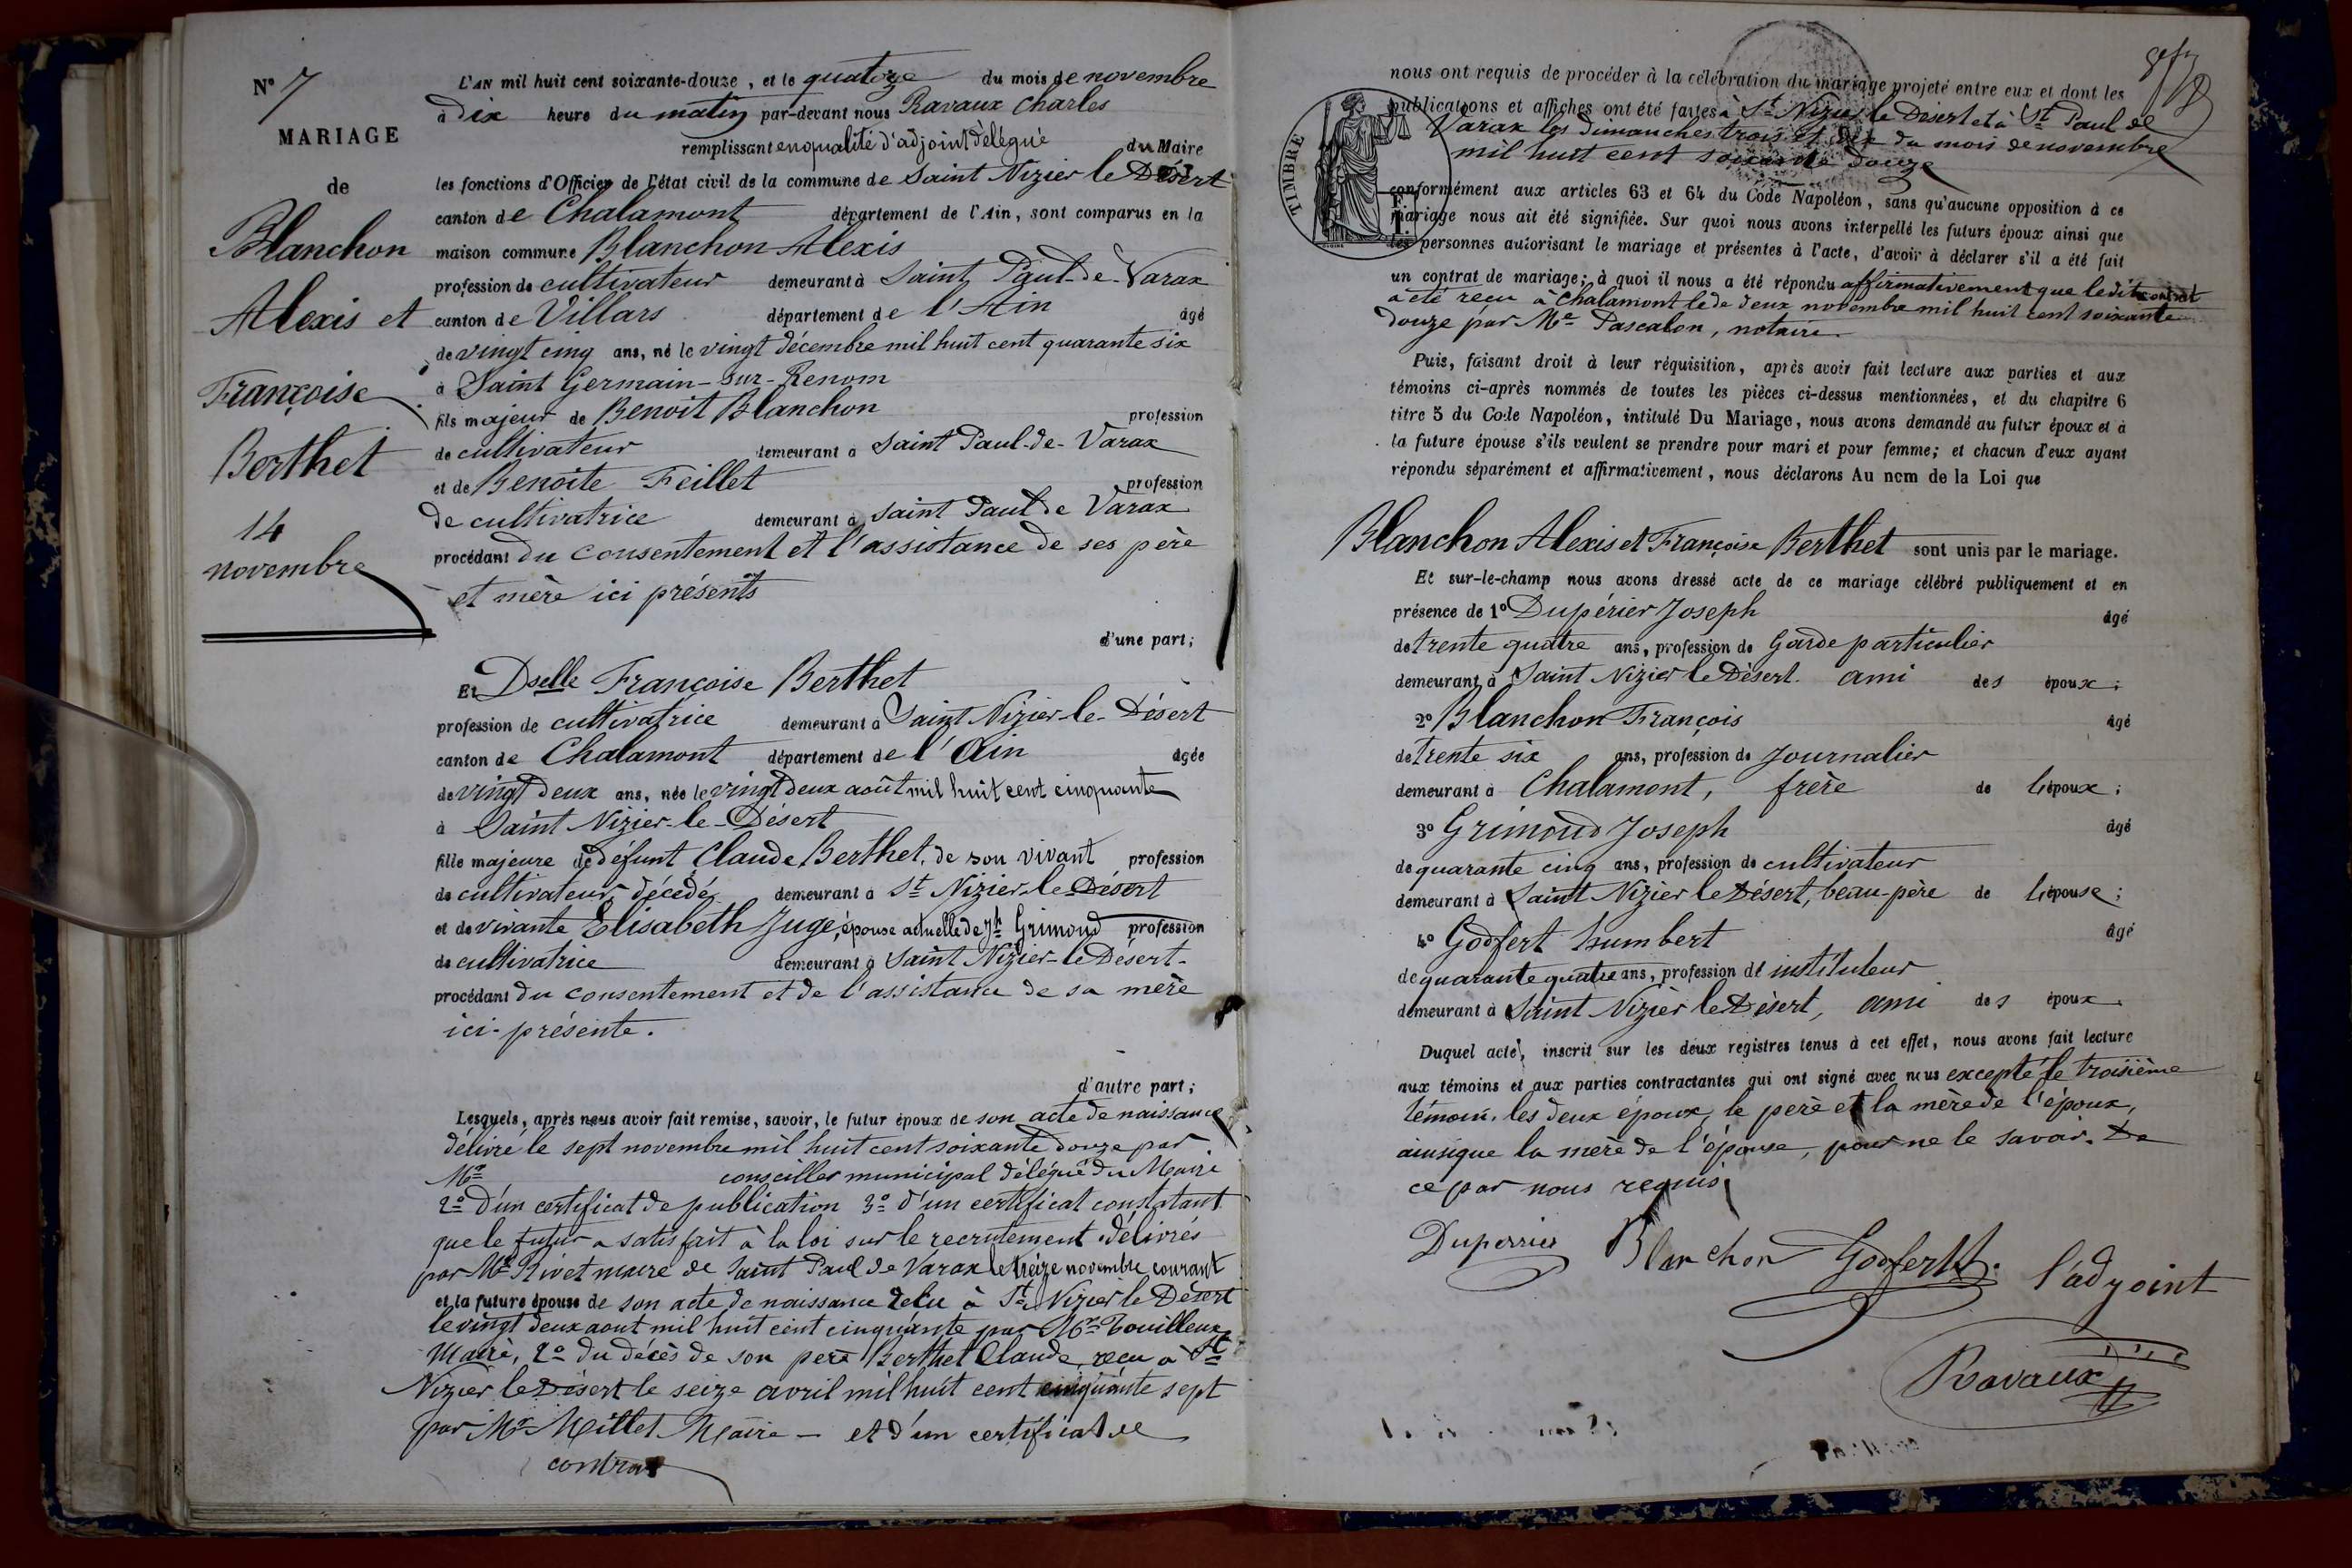 N° 7
MARIAGE
de
Blanchon
Alexis et
Françoise
Berthet
14
novembre
L'AN mil huit cent soixante-douze, et le quatorze du mois de novembre
à dix heure du matin par-devant nous Ravaux Charles
remplissant en qualité d'adjoint délégué du Maire
les fonctions d'Officier de l'état civil de la commune de Saint Nizier le Désert
canton de Chalamont département de l'Ain, sont comparus en la
maison commune Blanchon Alexis
profession de cultivateur demeurant à Saint Paul-de-Varax
canton de Villars département de l'Ain âgé
de vingt cinq ans, né le vingt décembre mil huit cent quarante six
à Saint Germain-sur-Renom
fils majeur de Benoit Blanchon profession
de cultivateur demeurant à Saint Paul-de-Varax
et de Benoite Feillet profession
de cultivatrice demeurant à Saint Paul de Varax
procédant du consentement et l'assistance de ses père
et mère ici présents
d'une part;
Et Dselle Françoise Berthet
profession de cultivatrice demeurant à Saint Nizier-le-Désert
canton de Chalamont département de l'Ain âgée
de vingt deux ans, née le vingt deux août mil huit cent cinquante
à Saint Nizier-le-Désert
fille majeure de défunt Claude Berthet, de son vivant profession
de cultivateur, décédé demeurant à St Nizier-le-Désert
et de vivante Elisabeth Juge, épouse actuelle de Jh Grimoud profession
de cultivatrice demeurant à Saint Nizier-le Désert-
procédant du consentement et de l'assistance de sa mère
ici-présente.
d'autre part;
Lesquels, après nous avoir fait remise, savoir, le futur époux de son acte de naissance
délivré le sept novembre mil huit cent soixante douze par
Mr conseiller municipal délégué du Maire
2° d'un certificat de publication 3° d'un certificat constatant
que le futur a satisfait à la loi sur le recrutement délivrés
par Mr Rivet maire de Saint Paul de Varax le treize novembre courant
et la future épouse de son acte de naissance à St Nizier le Désert
le vingt deux aout mil huit cent cinquante par Mr Bouilleux
Maire, 2° du décès de son père Berthet Claude, reçu à St
Nizier le Désert le seize avril mil huit cent cinquante sept
par Mr Millet Maire - et d'un certificat de
contrat
nous ont requis de procéder à la célébration du mariage projeté entre eux et dont les
publications et affiches ont été faites à St Nizier le Désert et à St Paul de
Varax les dimanches trois et dix du mois de novembre
mil huit cent soixante douze
TIMBRE
conformément aux articles 63 et 64 du Code Napoléon, sans qu'aucune opposition à ce
mariage nous ait été signifiée. Sur quoi nous avons interpellé les futurs époux ainsi que
les personnes autorisant le mariage et présentes à l'acte, d'avoir à déclarer s'il a été fait
un contrat de mariage; à quoi il nous a été répondu affirmativement que le dit contrat
a été reçu à Chalamont le de deux novembre mil huit cent soixante
douze par Me Pascalon, notaire.
Puis, faisant droit à leur réquisition, après avoir fait lecture aux parties et aux
témoins ci-après nommés de toutes les pièces ci-dessus mentionnées, et du chapitre 6
titre 5 du Code Napoléon, intitulé Du Mariage, nous avons demandé au futur époux et à
la future épouse s'ils veulent se prendre pour mari et pour femme; et chacun d'eux ayant
répondu séparément et affirmativement, nous déclarons Au nom de la Loi que
Blanchon Alexis et Françoise Berthet sont unis par le mariage.
Et sur-le-champ nous avons dressé acte de ce mariage célébré publiquement et en
présence de 1° Dupérier Joseph âgé
de trente quatre ans, profession de Garde particulier
demeurant à Saint Nizier le Désert. ami des époux;
2° Blanchon François âgé
de trente six ans, profession de Journalier
demeurant à Chalamont, frère de l'époux;
3° Grimoud Joseph âgé
de quarante cinq ans, profession de cultivateur
demeurant à Saint Nizier le Désert, beau-père de l'épouse;
4° Godfert humbert âgé
de quarante quatre ans, profession de instituteur
demeurant à Saint Nizier le Désert, ami des époux.
Duquel acte, inscrit sur les deux registres tenus à cet effet, nous avons fait lecture
aux témoins et aux parties contractantes qui ont signé avec nous excepté le troisième
témoin, les deux époux, le père et la mère de l'époux,
ainsique la mère de l'épouse, pour ne le savoir. De
ce par nous requis.
Duperrier Blanchon Godfert h. l'adjoint
Ravaux